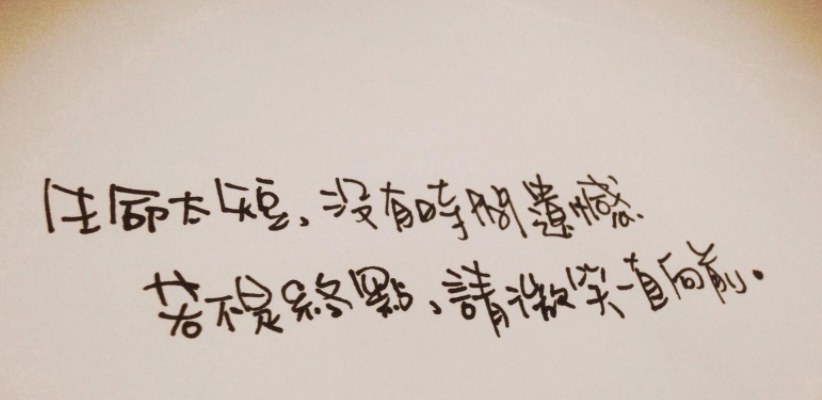 生命太短，沒有時間遺憾.
若不是終點，請微笑一直向前。